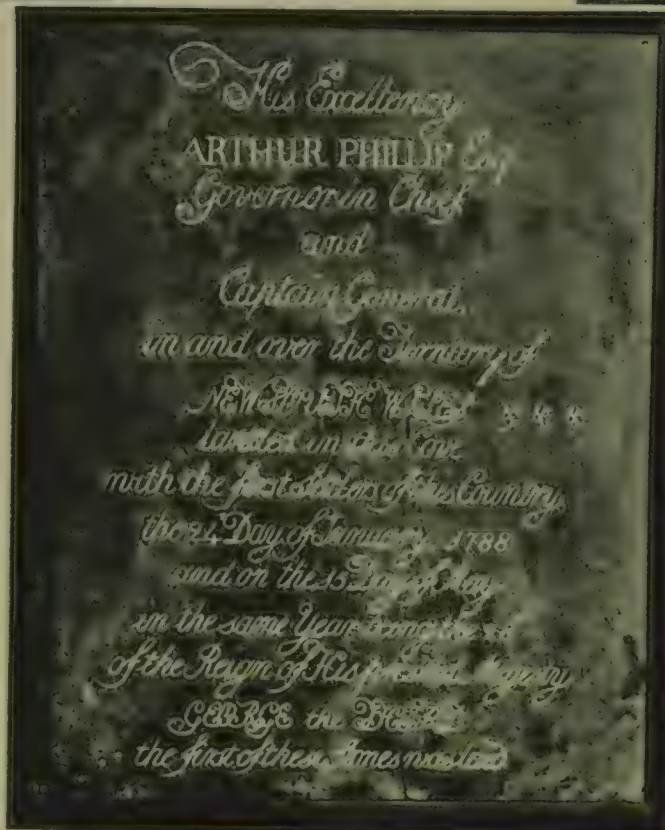 His Excellency
ARTHUR PHILLIP Esq
Governor in Chief
and
Captain General
in and over the Territory of
NEW SOUTH WALES &c &c &c
landed in this Cove
with the first settlers of this Country,
the 24 Day of January 1788
and on the 15 Day of May
in the same Year being the
of the Reign of His present Majesty
GEORGE the
the first of these Stones was laid